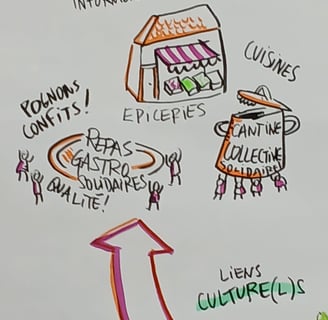 CUISINES
POGNONS
CONFITS!
EPICERIES
REPAS
GASTRO
SOLIDAIRES
QUALITÉ!
CANTINE
COLLECTIVE
SOLIDAIRE
LIENS
CULTURE(L)S